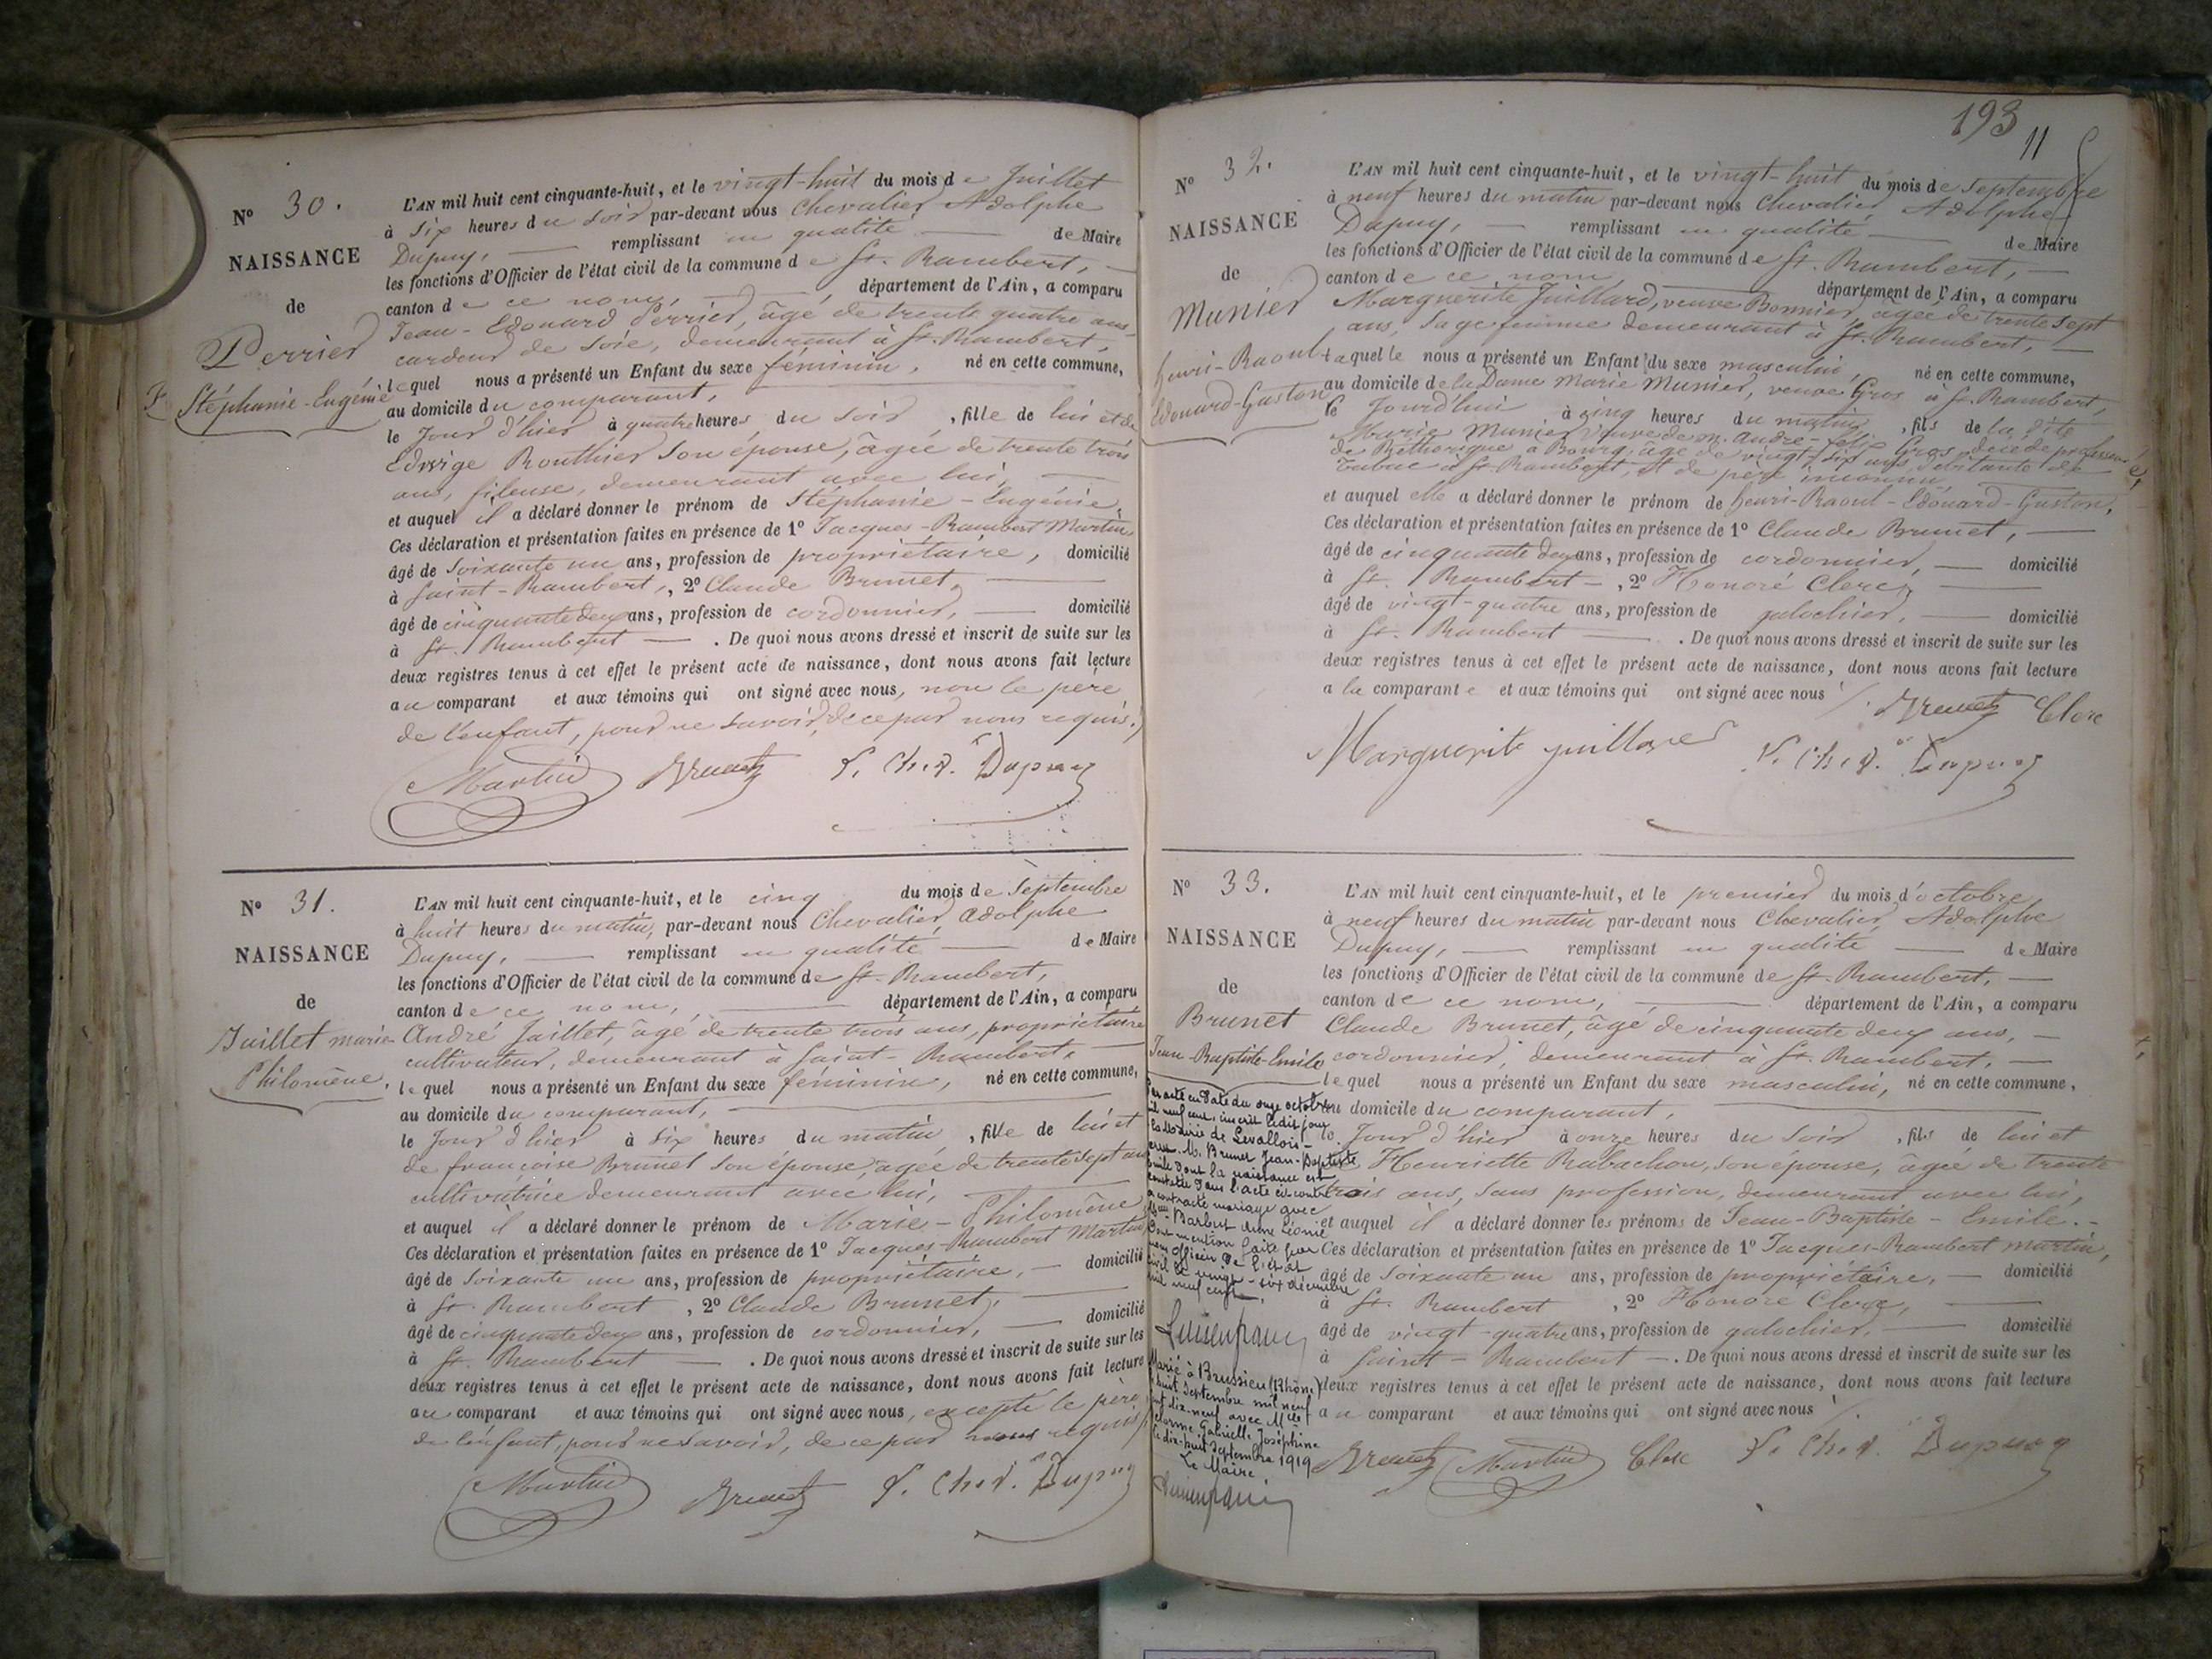 N° 30.
NAISSANCE
de
Perrier
Stéphanie-Eugénie
L'AN mil huit cent cinquante-huit, et le vingt-huit du mois de Juillet
à six heures du soir par-devant nous Chevalier Adolphe
Dupuy, remplissant en qualité de Maire
les fonctions d'Officier de l'état civil de la commune de St. Rambert,
canton de ce nom, département de l'Ain, a comparu
Jean-Edouard Perrier, âgé de trente quatre ans
cardeur de soie, demeurant à St. Rambert,
lequel nous a présenté un Enfant du sexe féminin, né en cette commune,
au domicile du comparant,
le Jour d'hier à quatre heures du soir, fille de lui et de
Edwige Routhier son épouse, âgée de trente trois
ans, fileuse, demeurant avec lui,
et auquel il a déclaré donner le prénom de Stéphanie-Eugénie,
Ces déclaration et présentation faites en présence de 1° Jacques-Rambert Martin
âgé de soixante un ans, profession de propriétaire, domicilié
à Saint-Rambert, 2° Claude Brunet,
âgé de cinquante deux ans, profession de cordonnier, domicilié
à St. Rambert. De quoi nous avons dressé et inscrit de suite sur les
deux registres tenus à cet effet le présent acte de naissance, dont nous avons fait lecture
au comparant et aux témoins qui ont signé avec nous, non le père
de l'enfant, pour ne savoir, de ce par nous requis.
Martin Brunet Chev. Dupuy
N° 31.
NAISSANCE
de
Juillet marie
Philomène.
L'AN mil huit cent cinquante-huit, et le cinq du mois de Septembre
à huit heures du matin, par-devant nous Chevalier, Adolphe
Dupuy, remplissant en qualité de Maire
les fonctions d'Officier de l'état civil de la commune de St. Rambert,
canton de ce nom, département de l'Ain, a comparu
André Juillet, âgé de trente trois ans, propriétaire
cultivateur, demeurant à Saint-Rambert,
lequel nous a présenté un Enfant du sexe féminin, né en cette commune,
au domicile du comparant,
le Jour d'hier à six heures du matin, fille de lui et
de françoise Brunet son épouse, âgée de trente sept ans
cultivatrice demeurant avec lui,
et auquel il a déclaré donner le prénom de Marie-Philomène
Ces déclaration et présentation faites en présence de 1° Jacques-Rambert Martin
âgé de soixante un ans, profession de propriétaire, domicilié
à St. Rambert, 2° Claude Brunet,
âgé de cinquante deux ans, profession de cordonnier, domicilié
à St. Rambert. De quoi nous avons dressé et inscrit de suite sur les
deux registres tenus à cet effet le présent acte de naissance, dont nous avons fait lecture
au comparant et aux témoins qui ont signé avec nous, excepté le père
de l'enfant, pour ne savoir, de ce par nous requis
Martin Brunet Chev. Dupuy
193
11
N° 32.
NAISSANCE
de
Munier
henri-Raoul
Edouard-Gaston
L'AN mil huit cent cinquante-huit, et le vingt-huit du mois de Septembre
à neuf heures du matin par-devant nous Chevalier Adolphe
Dupuy, remplissant en qualité de Maire
les fonctions d'Officier de l'état civil de la commune de St. Rambert,
canton de ce nom département de l'Ain, a comparu
Marguerite Juillard, veuve Bonnier, âgée de trente sept
ans, Sage femme demeurant à St. Rambert,
laquelle nous a présenté un Enfant du sexe masculin, né en cette commune,
au domicile de la Dame Marie Munier, veuve Gros à St. Rambert,
le Jourd'hui à cinq heures du matin, fils de la dite
Marie Munier veuve de m. André-felix Gros, décédé professeur
de Réthorique à Bourg, âgée de vingt six ans, débitante de
tabac à St. Rambert, et de père inconnu,
et auquel elle a déclaré donner le prénom de henri-Raoul-Edouard-Gaston,
Ces déclaration et présentation faites en présence de 1° Claude Brunet,
âgé de cinquante deux ans, profession de cordonnier, domicilié
à St. Rambert, 2° Honoré Clerc,
âgé de vingt-quatre ans, profession de galochier, domicilié
à St. Rambert. De quoi nous avons dressé et inscrit de suite sur les
deux registres tenus à cet effet le présent acte de naissance, dont nous avons fait lecture
a la comparante et aux témoins qui ont signé avec nous
Brunet Clerc
Marguerite juillard Chev. Dupuy
N° 33.
NAISSANCE
de
Brunet
Jean-Baptiste-Emile
Par acte en date du onze octobre
mil neuf cent, inscrit ledit jour
Mairie de Levallois-
M. Brunet Jean-Baptiste
Emile dont la naissance est
constatée dans l'acte ci-contre
a contracté mariage avec
Barbut Anne Léonie
Dont mention faite par
officier de l'état
civil le vingt-six décembre
mil neuf cent.
Marié à Brussieu (Rhône)
huit septembre mil neuf
cent dix-neuf avec Melle
Gabrielle Joséphine
le dix-huit Septembre 1919
Le Maire,
L'AN mil huit cent cinquante-huit, et le premier du mois d'octobre
à neuf heures du matin par-devant nous Chevalier, Adolphe
Dupuy, remplissant en qualité de Maire
les fonctions d'Officier de l'état civil de la commune de St. Rambert,
canton de ce nom, département de l'Ain, a comparu
Claude Brunet, âgé de cinquante deux ans,
cordonnier, demeurant à St. Rambert,
lequel nous a présenté un Enfant du sexe masculin, né en cette commune,
au domicile du comparant,
le Jour d'hier à onze heures du Soir, fils de lui et
de Henriette Rabachon, son épouse, âgée de trente
trois ans, sans profession, demeurant avec lui,
et auquel il a déclaré donner les prénoms de Jean-Baptiste-Emile.
Ces déclaration et présentation faites en présence de 1° Jacques-Rambert martin,
âgé de soixante un ans, profession de propriétaire, domicilié
à St. Rambert, 2° Honoré Clerc,
âgé de vingt-quatre ans, profession de galochier, domicilié
à Saint-Rambert. De quoi nous avons dressé et inscrit de suite sur les
deux registres tenus à cet effet le présent acte de naissance, dont nous avons fait lecture
au comparant et aux témoins qui ont signé avec nous
Brunet Martin Clerc Chev. Dupuy